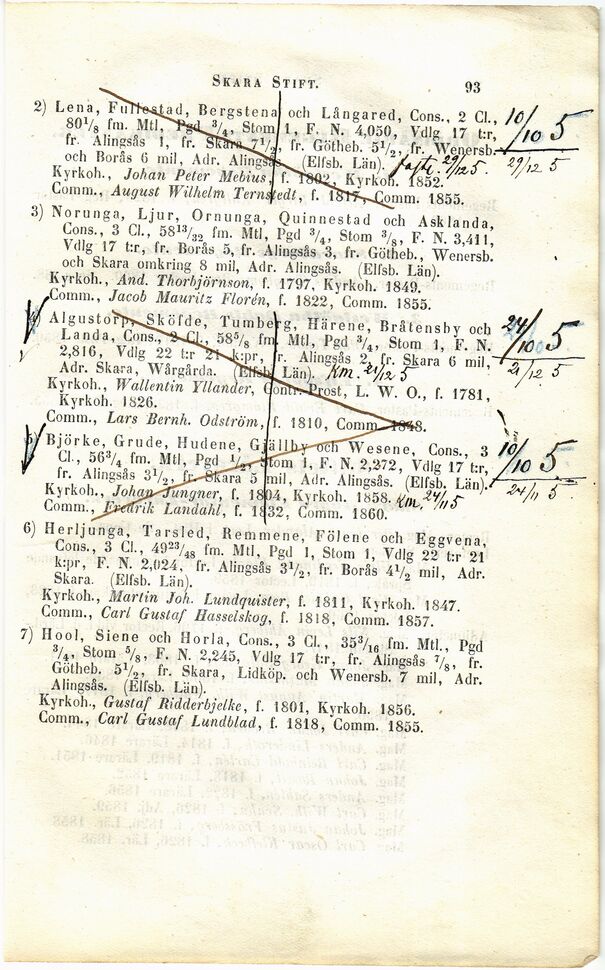 SKARA STIFT. 93
2) Lena, Fullestad, Bergstena och Långared, Cons., 2 Cl., 10/10 5
80 1/8 fm. Mtl, Pgd 3/4, Stom 1, F. N. 4,050, Vdlg 17 t:r,
fr. Alingsås 1, fr. Skara 7 1/2, fr. Götheb. 5 1/2, fr. Wenersb.
och Borås 6 mil, Adr. Alingsås. (Elfsb. Län). 29/12 5. 29/12 5
Kyrkoh., Johan Peter Mebius, f. 1802, Kyrkoh. 1852.
Comm., August Wilhelm Ternstedt, f. 1817, Comm. 1855.
3) Norunga, Ljur, Ornunga, Quinnestad och Asklanda,
Cons., 3 Cl., 58 13/32 fm. Mtl, Pgd 3/4, Stom 3/8, F. N. 3,411,
Vdlg 17 t:r, fr. Borås 5, fr. Alingsås 3, fr. Götheb., Wenersb.
och Skara omkring 8 mil, Adr. Alingsås. (Elfsb. Län).
Kyrkoh., And. Thorbjörnson, f. 1797, Kyrkoh. 1849.
Comm., Jacob Mauritz Florén, f. 1822, Comm. 1855.
4) Algustorp, Sköfde, Tumberg, Härene, Bråtensby och 24/10 5
Landa, Cons., 2 Cl., 58 5/8 fm. Mtl, Pgd 3/4, Stom 1, F. N.
2,816, Vdlg 22 t:r 21 k:pr, fr. Alingsås 2, fr. Skara 6 mil,
Adr. Skara, Wårgårda. (Elfsb. Län). Km. 21/12 5 21/12 5
Kyrkoh., Wallentin Yllander, Contr. Prost, L. W. O., f. 1781,
Kyrkoh. 1826.
Comm., Lars Bernh. Odström, f. 1810, Comm. 1848.
5) Björke, Grude, Hudene, Gjällby och Wesene, Cons., 3 10/10 5
Cl., 56 3/4 fm. Mtl, Pgd 1/2, Stom 1, F. N. 2,272, Vdlg 17 t:r,
fr. Alingsås 3 1/2, fr. Skara 5 mil, Adr. Alingsås. (Elfsb. Län).
Kyrkoh., Johan Jungner, f. 1804, Kyrkoh. 1858. Km. 24/11 5 24/11 5
Comm., Fredrik Landahl, f. 1832, Comm. 1860.
6) Herljunga, Tarsled, Remmene, Fölene och Eggvena,
Cons., 3 Cl., 49 23/48 fm. Mtl, Pgd 1, Stom 1, Vdlg 22 t:r 21
k:pr, F. N. 2,024, fr. Alingsås 3 1/2, fr. Borås 4 1/2 mil, Adr.
Skara. (Elfsb. Län).
Kyrkoh., Martin Joh. Lundquister, f. 1811, Kyrkoh. 1847.
Comm., Carl Gustaf Hasselskog, f. 1818, Comm. 1857.
7) Hool, Siene och Horla, Cons., 3 Cl., 35 3/16 fm. Mtl., Pgd
3/4, Stom 5/8, F. N. 2,245, Vdlg 17 t:r, fr. Alingsås 7/8, fr.
Götheb. 5 1/2, fr. Skara, Lidköp. och Wenersb. 7 mil, Adr.
Alingsås. (Elfsb. Län).
Kyrkoh., Gustaf Ridderbjelke, f. 1801, Kyrkoh. 1856.
Comm., Carl Gustaf Lundblad, f. 1818, Comm. 1855.